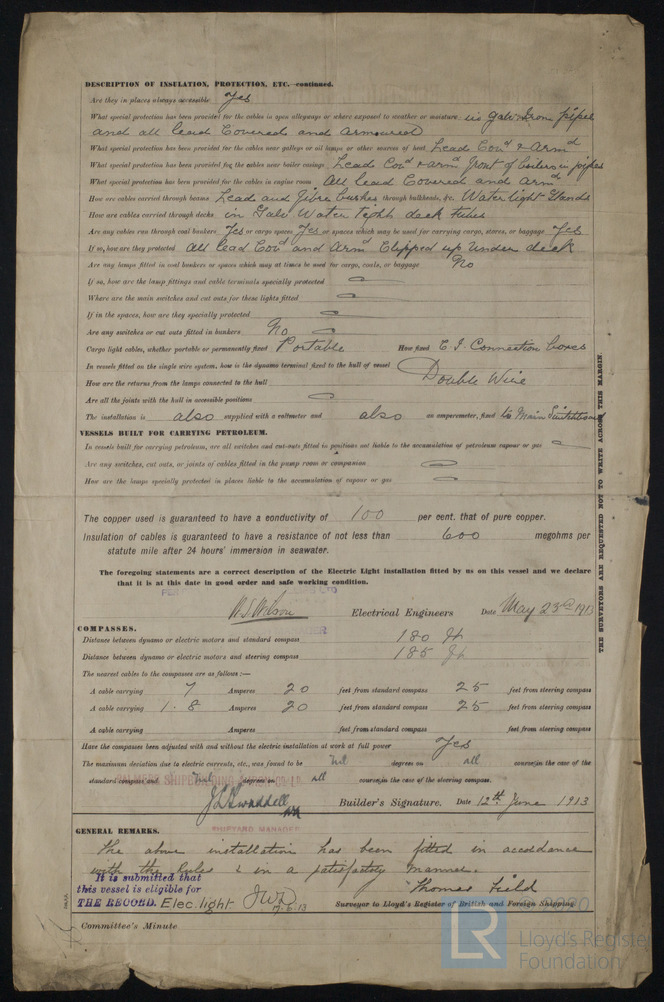 DESCRIPTION OF INSULATION, PROTECTION, ETC.—continued.
Are they in places always accessible Yes
What special protection has been provided for the cables in open alleyways or where exposed to weather or moisture in Galv Iron pipes
and all lead Covered and armoured
What special protection has been provided for the cables near galleys or oil lamps or other sources of heat Lead Covd & Armd
What special protection has been provided for the cables near boiler casings Lead Covd & armd front of boilers in pipes
What special protection has been provided for the cables in engine room All lead Covered and armd
How are cables carried through beams Lead and Fibre bushes through bulkheads, &c. Water tight Glands
How are cables carried through decks in Galv Water Tight deck tubes
Are any cables run through coal bunkers Yes or cargo spaces Yes or spaces which may be used for carrying cargo, stores, or baggage Yes
If so, how are they protected All lead Covd and Armd Clipped up under deck
Are any lamps fitted in coal bunkers or spaces which may at times be used for cargo, coals, or baggage No
If so, how are the lamp fittings and cable terminals specially protected
Where are the main switches and cut outs for these lights fitted
If in the spaces, how are they specially protected
Are any switches or cut outs fitted in bunkers No
Cargo light cables, whether portable or permanently fixed Portable How fixed C I. Connection boxes
In vessels fitted on the single wire system, how is the dynamo terminal fixed to the hull of vessel
How are the returns from the lamps connected to the hull Double Wire
Are all the joints with the hull in accessible positions
The installation is also supplied with a voltmeter and also an amperemeter, fixed to Main Switchboard
VESSELS BUILT FOR CARRYING PETROLEUM.
In vessels built for carrying petroleum, are all switches and cut-outs fitted in positions not liable to the accumulation of petroleum vapour or gas
Are any switches, cut outs, or joints of cables fitted in the pump room or companion
How are the lamps specially protected in places liable to the accumulation of vapour or gas
The copper used is guaranteed to have a conductivity of 100 per cent. that of pure copper.
Insulation of cables is guaranteed to have a resistance of not less than 600 megohms per
statute mile after 24 hours' immersion in seawater.
The foregoing statements are a correct description of the Electric Light installation fitted by us on this vessel and we declare
that it is at this date in good order and safe working condition.
W. J. Wilson Electrical Engineers Date May 23rd 1913
COMPASSES.
Distance between dynamo or electric motors and standard compass 180 ft
Distance between dynamo or electric motors and steering compass 185 ft
The nearest cables to the compasses are as follows:—
A cable carrying 7 Amperes 20 feet from standard compass 25 feet from steering compass
A cable carrying 1.8 Amperes 20 feet from standard compass 25 feet from steering compass
A cable carrying Amperes feet from standard compass feet from steering compass
Have the compasses been adjusted with and without the electric installation at work at full power Yes
The maximum deviation due to electric currents, etc., was found to be Nil degrees on all course in the case of the
standard compass and Nil degrees on all course in the case of the steering compass.
Builder's Signature. Date 12th June 1913
SHIPYARD MANAGER
GENERAL REMARKS.
The above installation has been fitted in accordance
with the Rules & in a satisfactory manner.
It is submitted that
this vessel is eligible for
THE RECORD. Elec. light
Thomas Field
Surveyor to Lloyd's Register of British and Foreign Shipping
Committee's Minute
THE SURVEYORS ARE REQUESTED NOT TO WRITE ACROSS THIS MARGIN.
LR
Lloyd's Register
Foundation